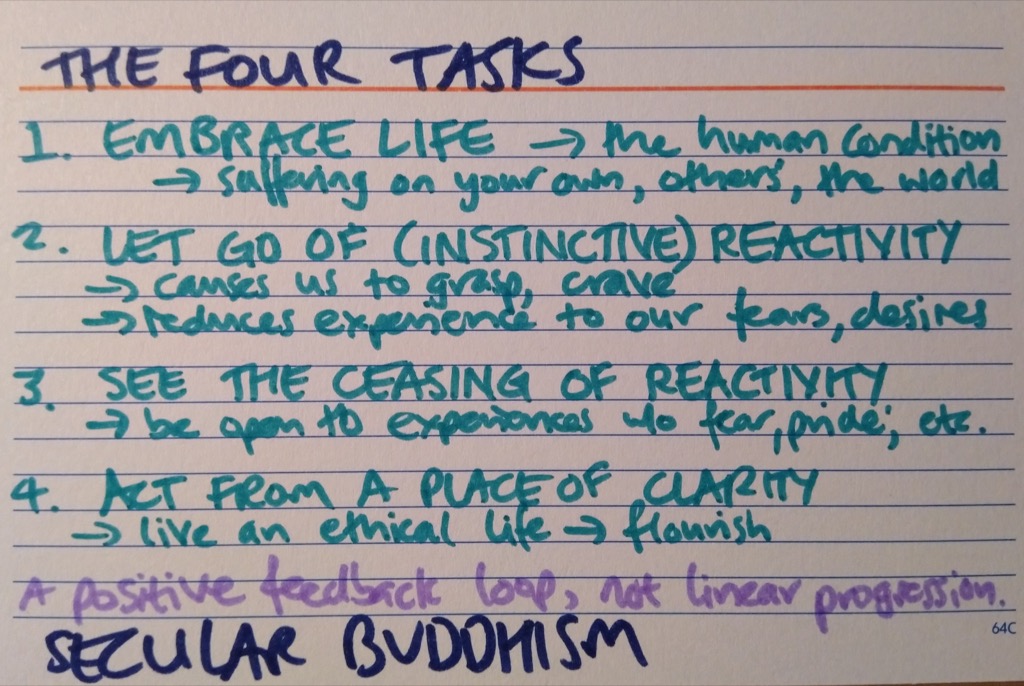 THE FOUR TASKS
1. EMBRACE LIFE → the human condition
→ suffering on your own, others', the world
2. LET GO OF (INSTINCTIVE) REACTIVITY
→ causes us to grasp, crave
→ reduces experience to our fears, desires
3. SEE THE CEASING OF REACTIVITY
→ be open to experiences w/o fear, pride, etc.
4. ACT FROM A PLACE OF CLARITY
→ live an ethical life → flourish
A positive feedback loop, not linear progression.
64C
SECULAR BUDDHISM